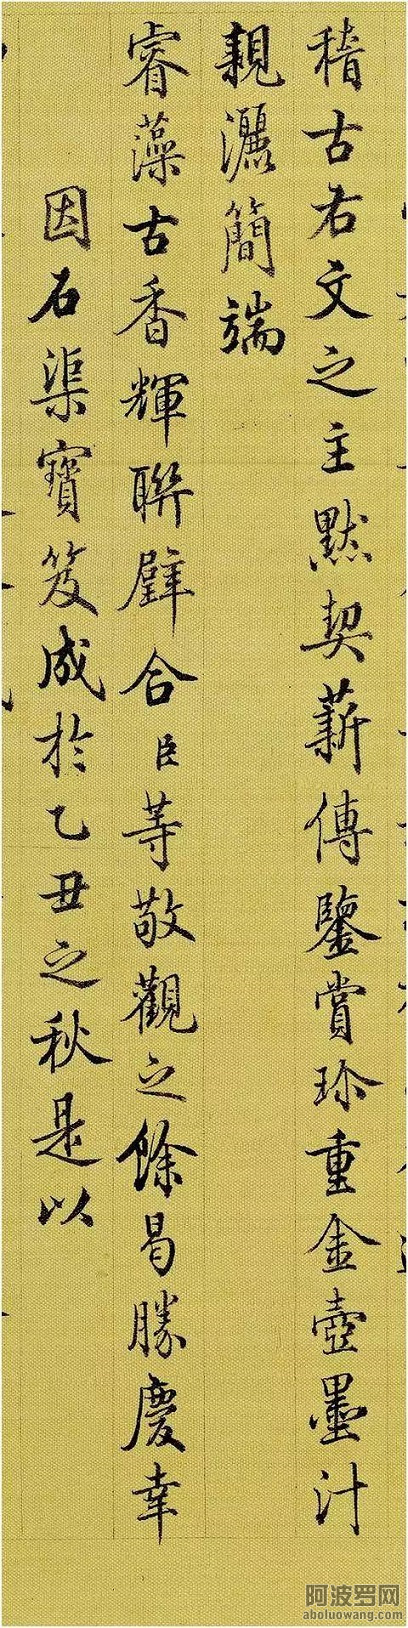 稽古右文之主默契薪傳鑒賞珍重金壺墨汁
親灑簡端
睿藻古香輝聯璧合臣等敬觀之餘曷勝慶幸
因石渠寶笈成於乙丑之秋是以
阿波罗网
aboluowang.com